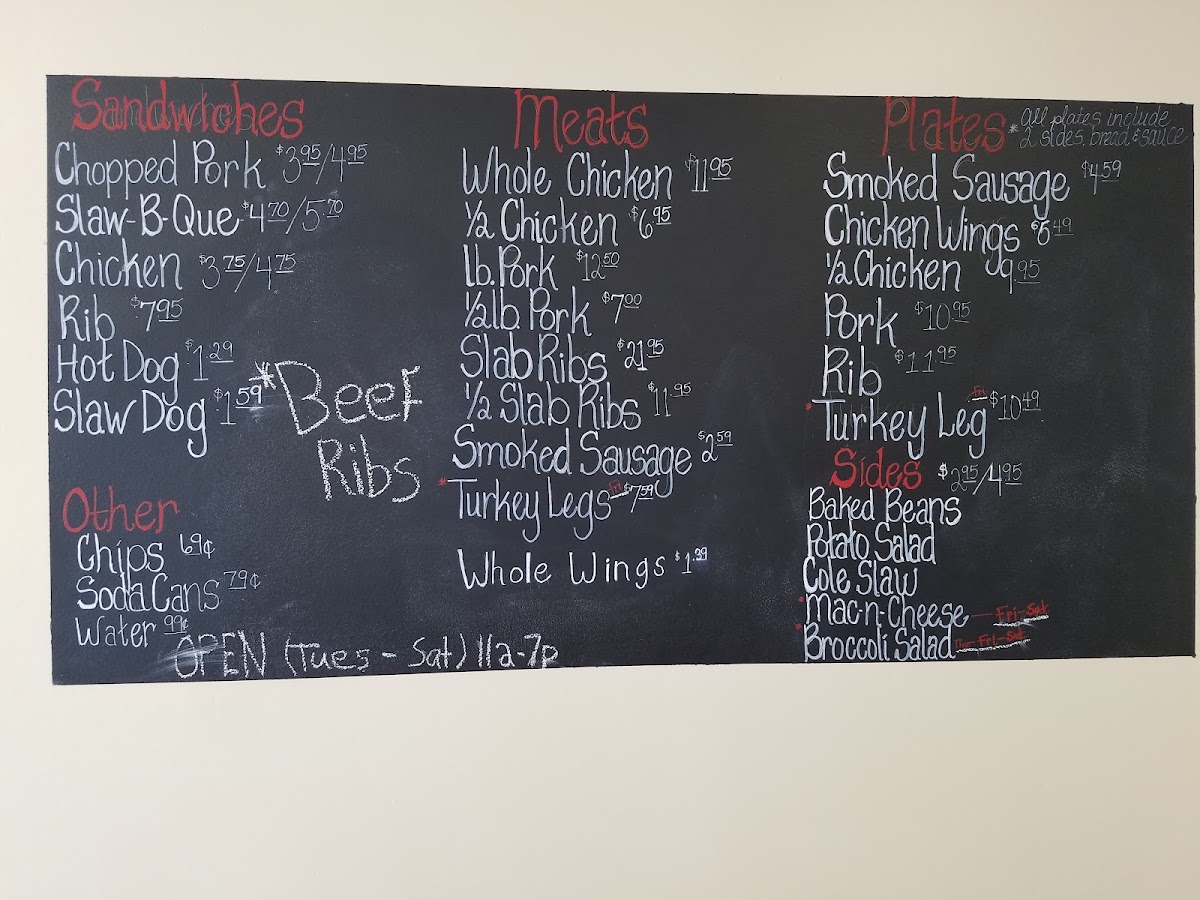 Sandwiches
Chopped Pork $3.95/4.95
Slaw-B-Que $4.70/5.70
Chicken $3.75/4.75
Rib $7.95
Hot Dog $1.29
Slaw Dog $1.59
*Beef
Ribs
Other
Chips 69¢
Soda Cans 79¢
Water 99¢
OPEN (Tues - Sat) 11a-7p
Meats
Whole Chicken $11.95
1/2 Chicken $6.95
lb. Pork $12.50
1/2 lb. Pork $7.00
Slab Ribs $21.95
1/2 Slab Ribs $11.95
Smoked Sausage $2.59
*Turkey Legs Fri $7.59
Whole Wings $1.39
Plates
*all plates include
2 sides, bread & sauce
Smoked Sausage $4.59
Chicken Wings 49
1/2 Chicken 9.95
Pork $10.95
Rib $11.95
*Turkey Leg Fri $10.49
Sides $2.95/4.95
Baked Beans
Potato Salad
Cole Slaw
*Mac-n-Cheese — Fri-Sat
*Broccoli Salad Fri-Sat